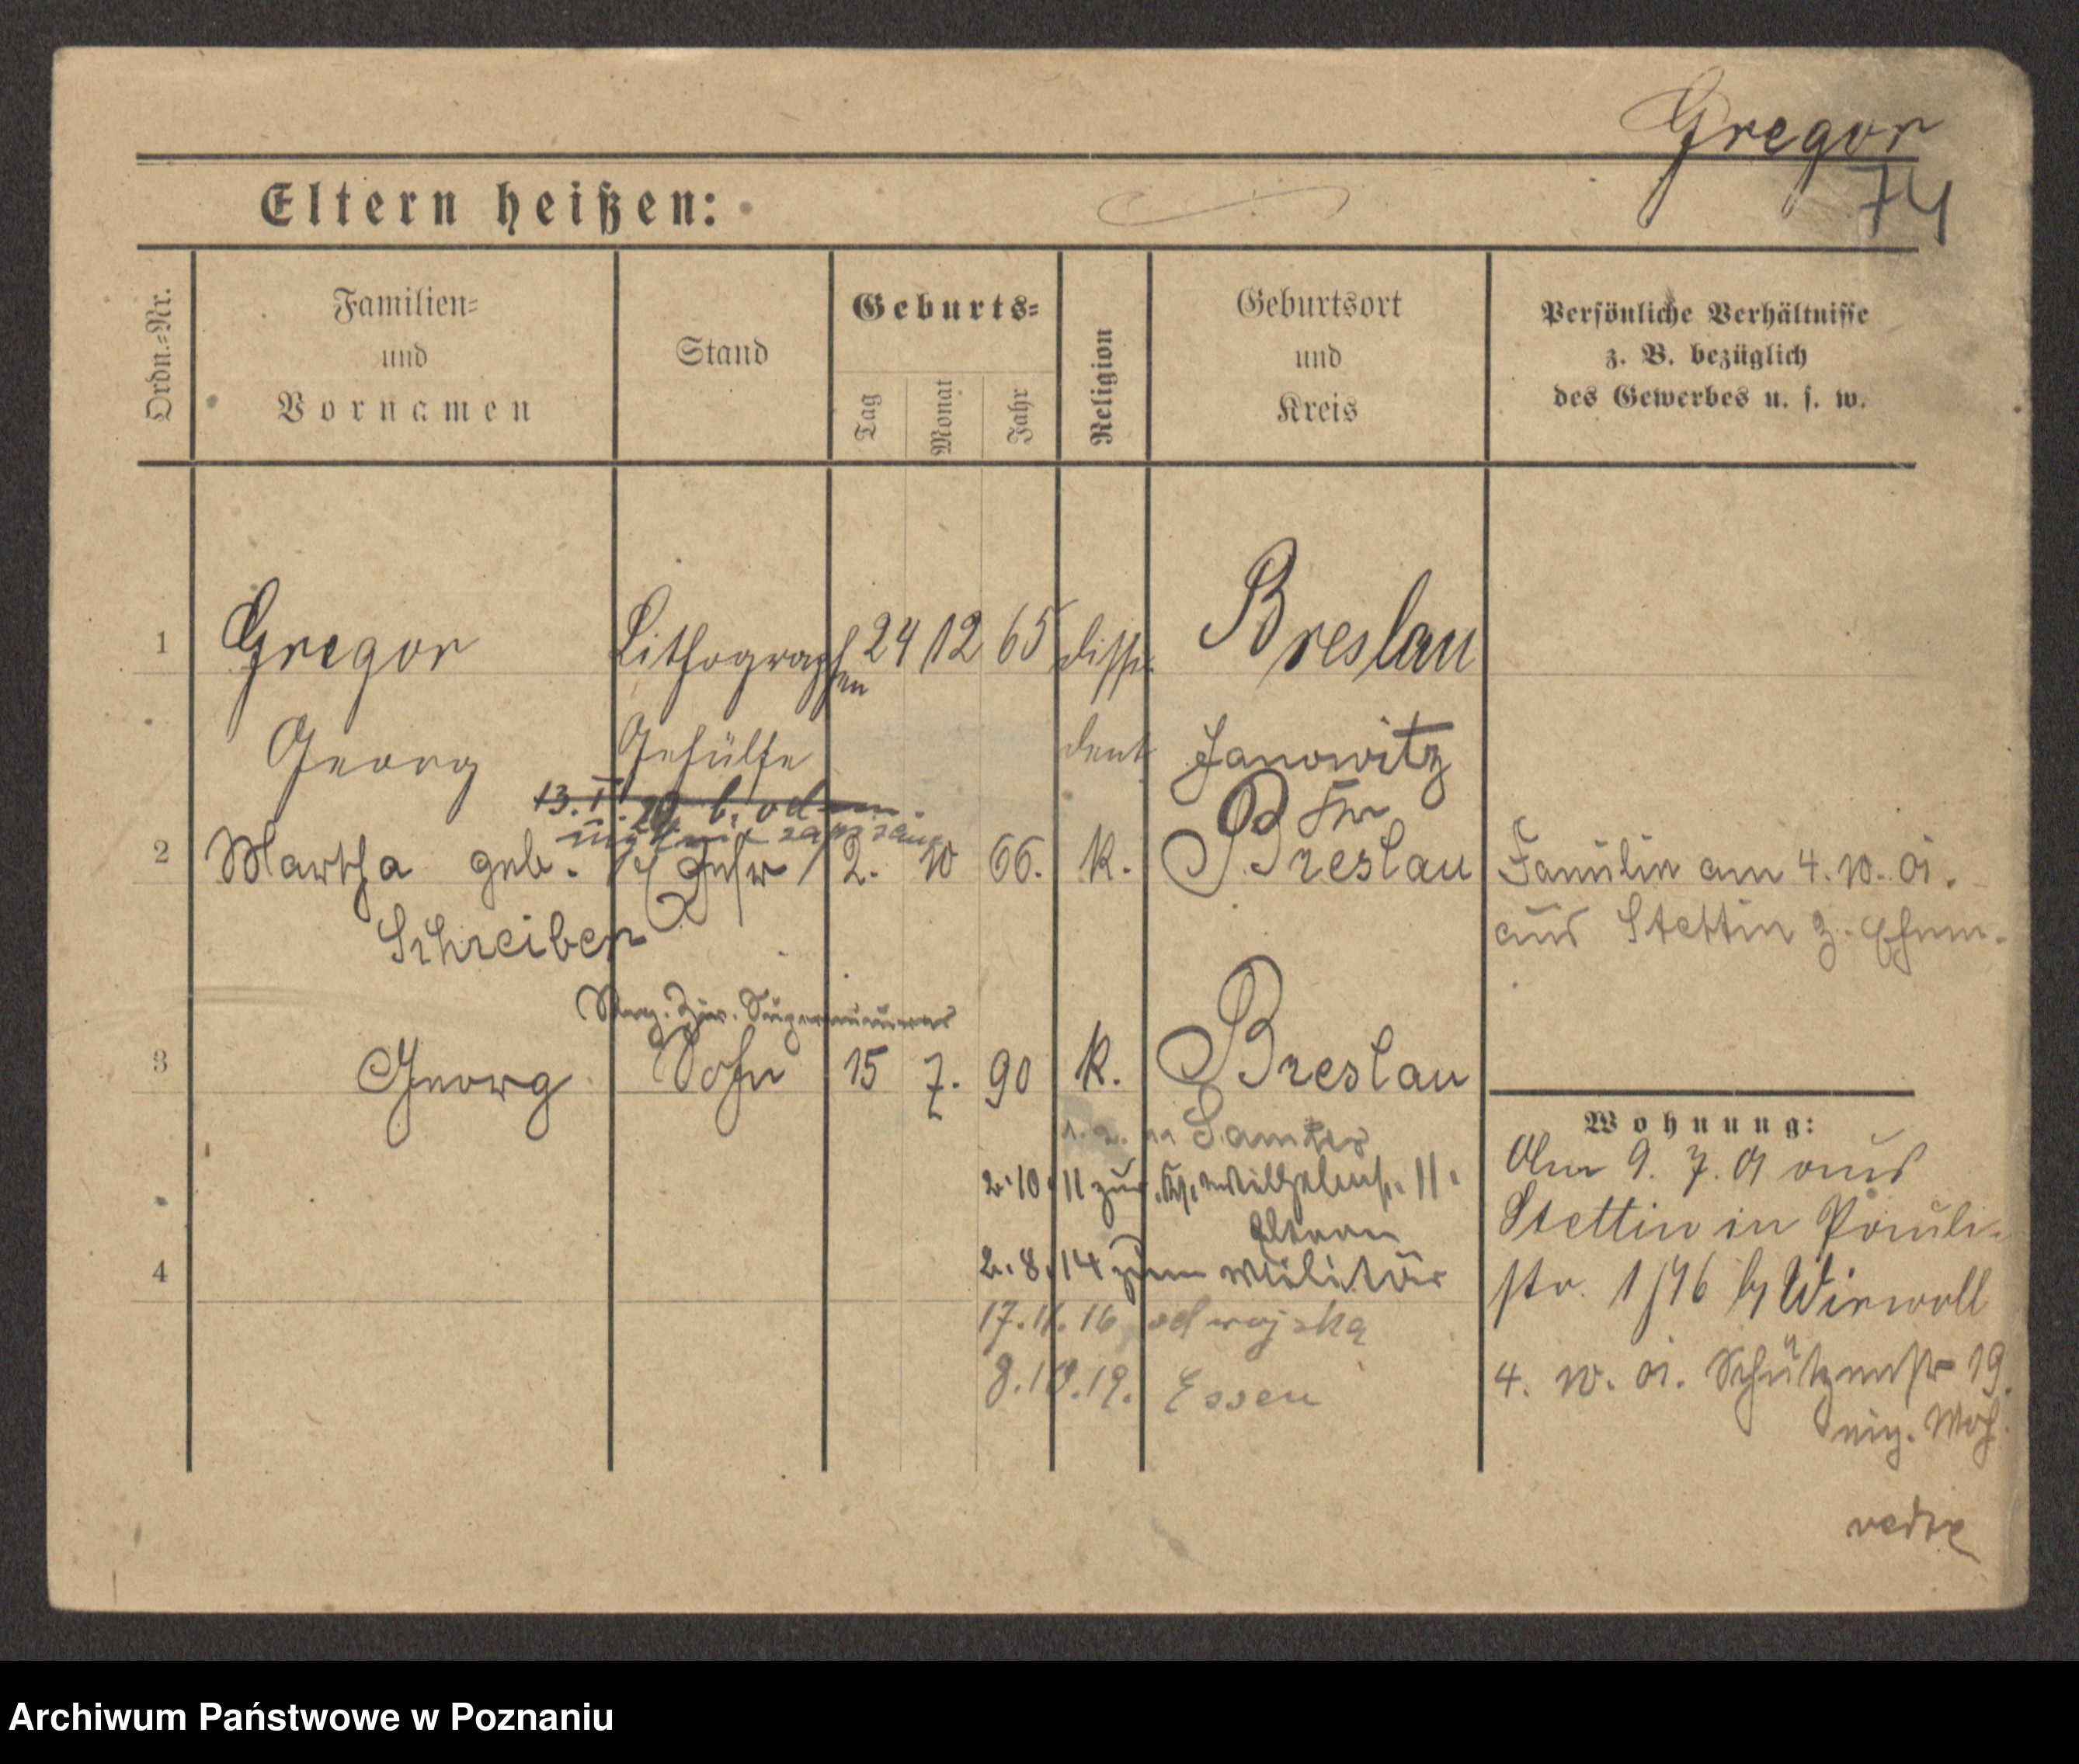 Gregor
74
Eltern heißen:
Ordn.-Nr.
Familien-
und
Vornamen
Stand
Geburts-
Tag
Monat
Jahr
Religion
Geburtsort
und
Kreis
Persönliche Verhältnisse
z. B. bezüglich
des Gewerbes u. s. w.
1 Gregor Lithographen 24 12 65 dissi- Breslau
Georg Gehülfe dent Janowitz
13. I. 20
2 Martha geb. 2. 10 66. k. Breslau
Schreiber
Familie am 4. 10. 01.
aus Stettin z. Ehem.
Supernumerar
3 Georg Sohn 15 7. 90 k. Breslau
Samter
2. 10. 11 zur 11.
Eltern
4 2. 8. 14 zum Militär
17. 11. 16 od wojska
8. 10. 19. Essen
Wohnung:
Am 9. 7. 01 aus
Stettin in Pauli-
str. 1 b/
4. 10. 01. Schützenstr 19.
eig. Woh.